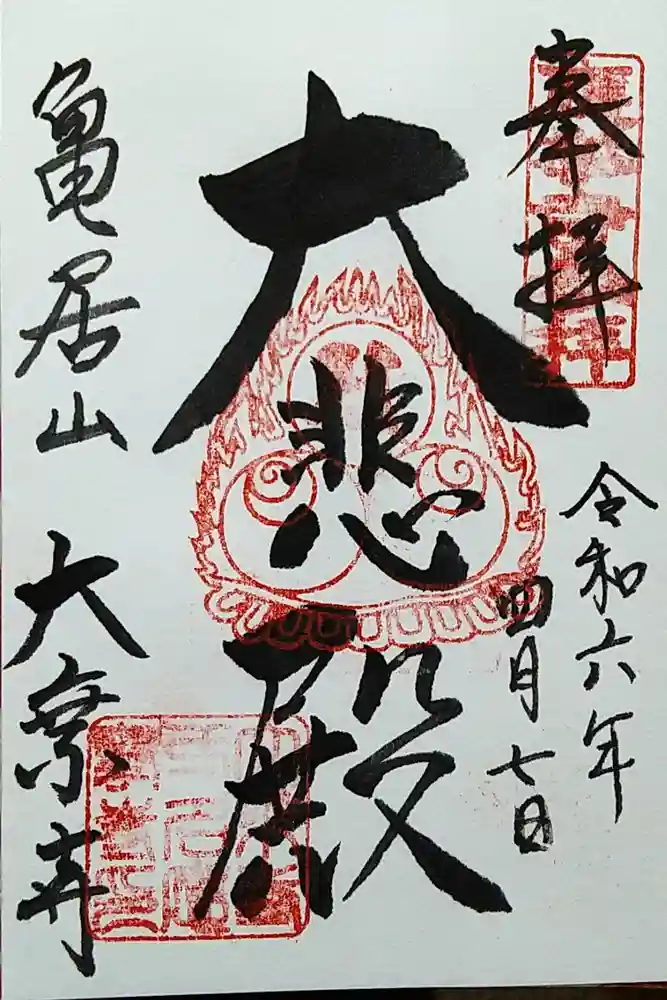 奉拝
令和六年
四月七日
大悲殿
亀居山 大乗寺